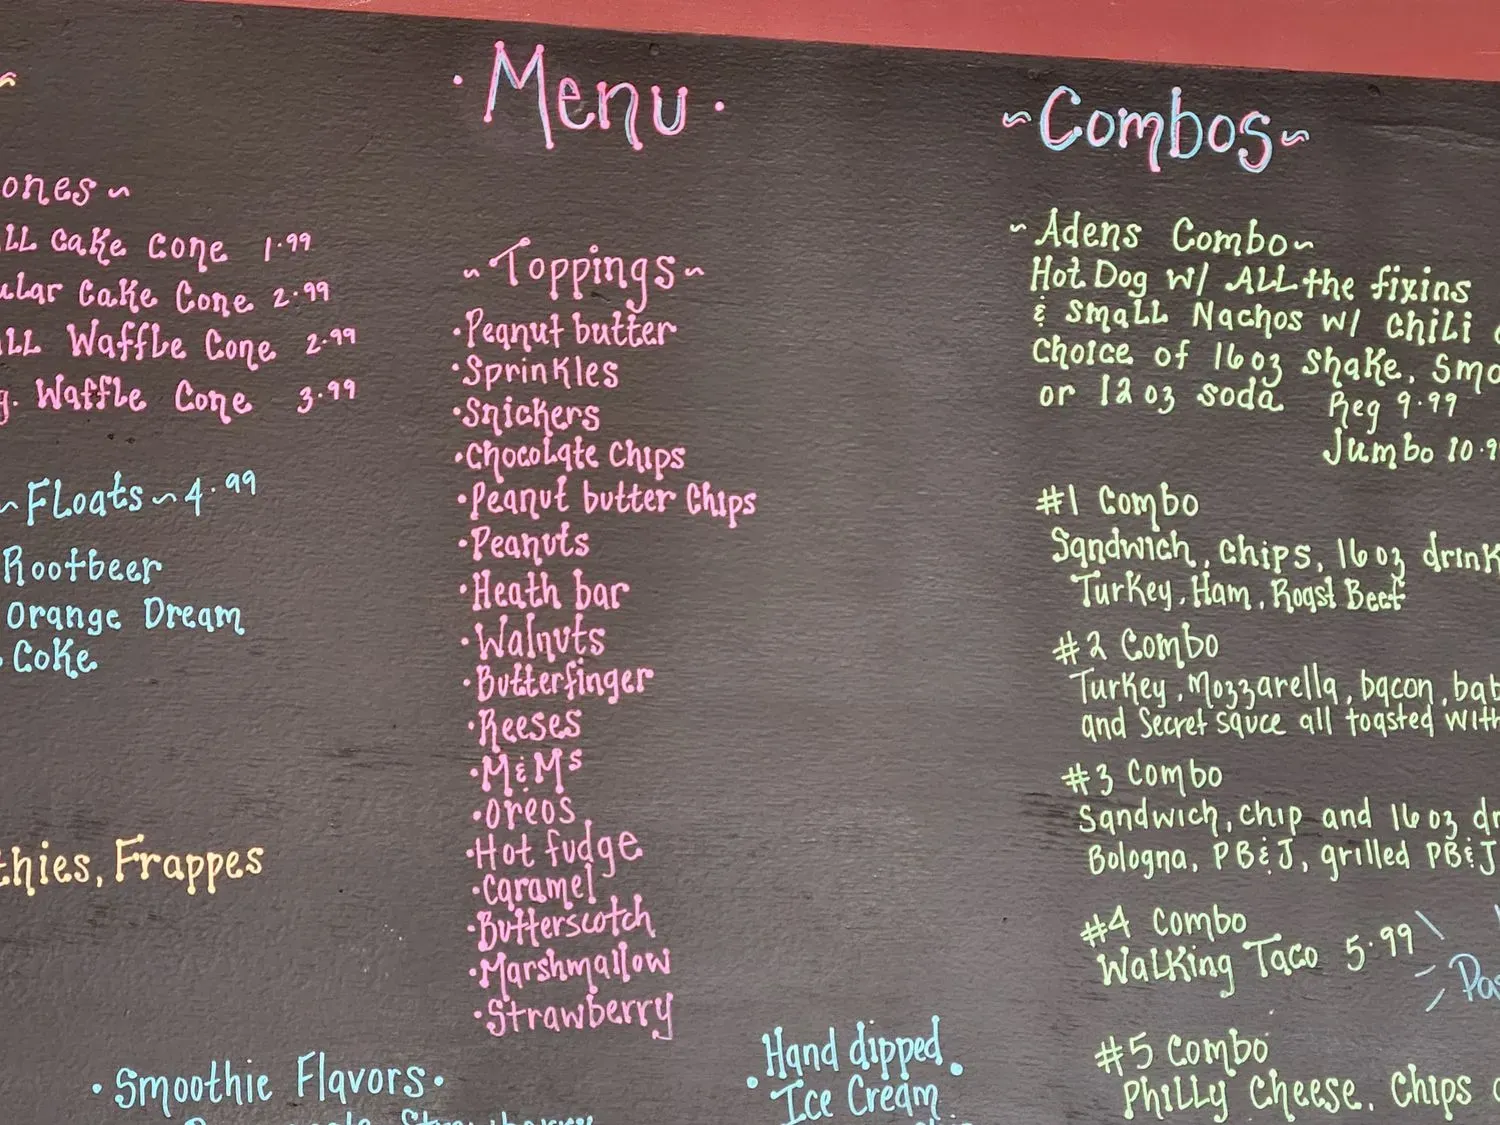 Menu
ones
Small Cake Cone 1.99
ular Cake Cone 2.99
all Waffle Cone 2.99
g. Waffle Cone 3.99
Floats 4.99
Rootbeer
Orange Dream
Coke
thies, Frappes
Smoothie Flavors
Toppings
Peanut butter
Sprinkles
Snickers
Chocolate Chips
Peanut butter Chips
Peanuts
Heath bar
Walnuts
Butterfinger
Reeses
M&Ms
Oreos
Hot fudge
Caramel
Butterscotch
Marshmallow
Strawberry
Hand dipped
Ice Cream
Combos
Adens Combo
Hot Dog w/ ALL the fixins
& small Nachos w/ chili
choice of 16oz shake, Smo
or 12oz soda
Reg 9.99
Jumbo 10.9
#1 Combo
Sandwich, chips, 16oz drink
Turkey, Ham, Roast Beef
#2 Combo
Turkey, Mozzarella, bacon, bab
and Secret sauce all toasted with
#3 Combo
Sandwich, chip and 16oz dr
Bologna, PB&J, grilled PB&J
#4 Combo
Walking Taco 5.99
#5 Combo
Philly Cheese, Chips